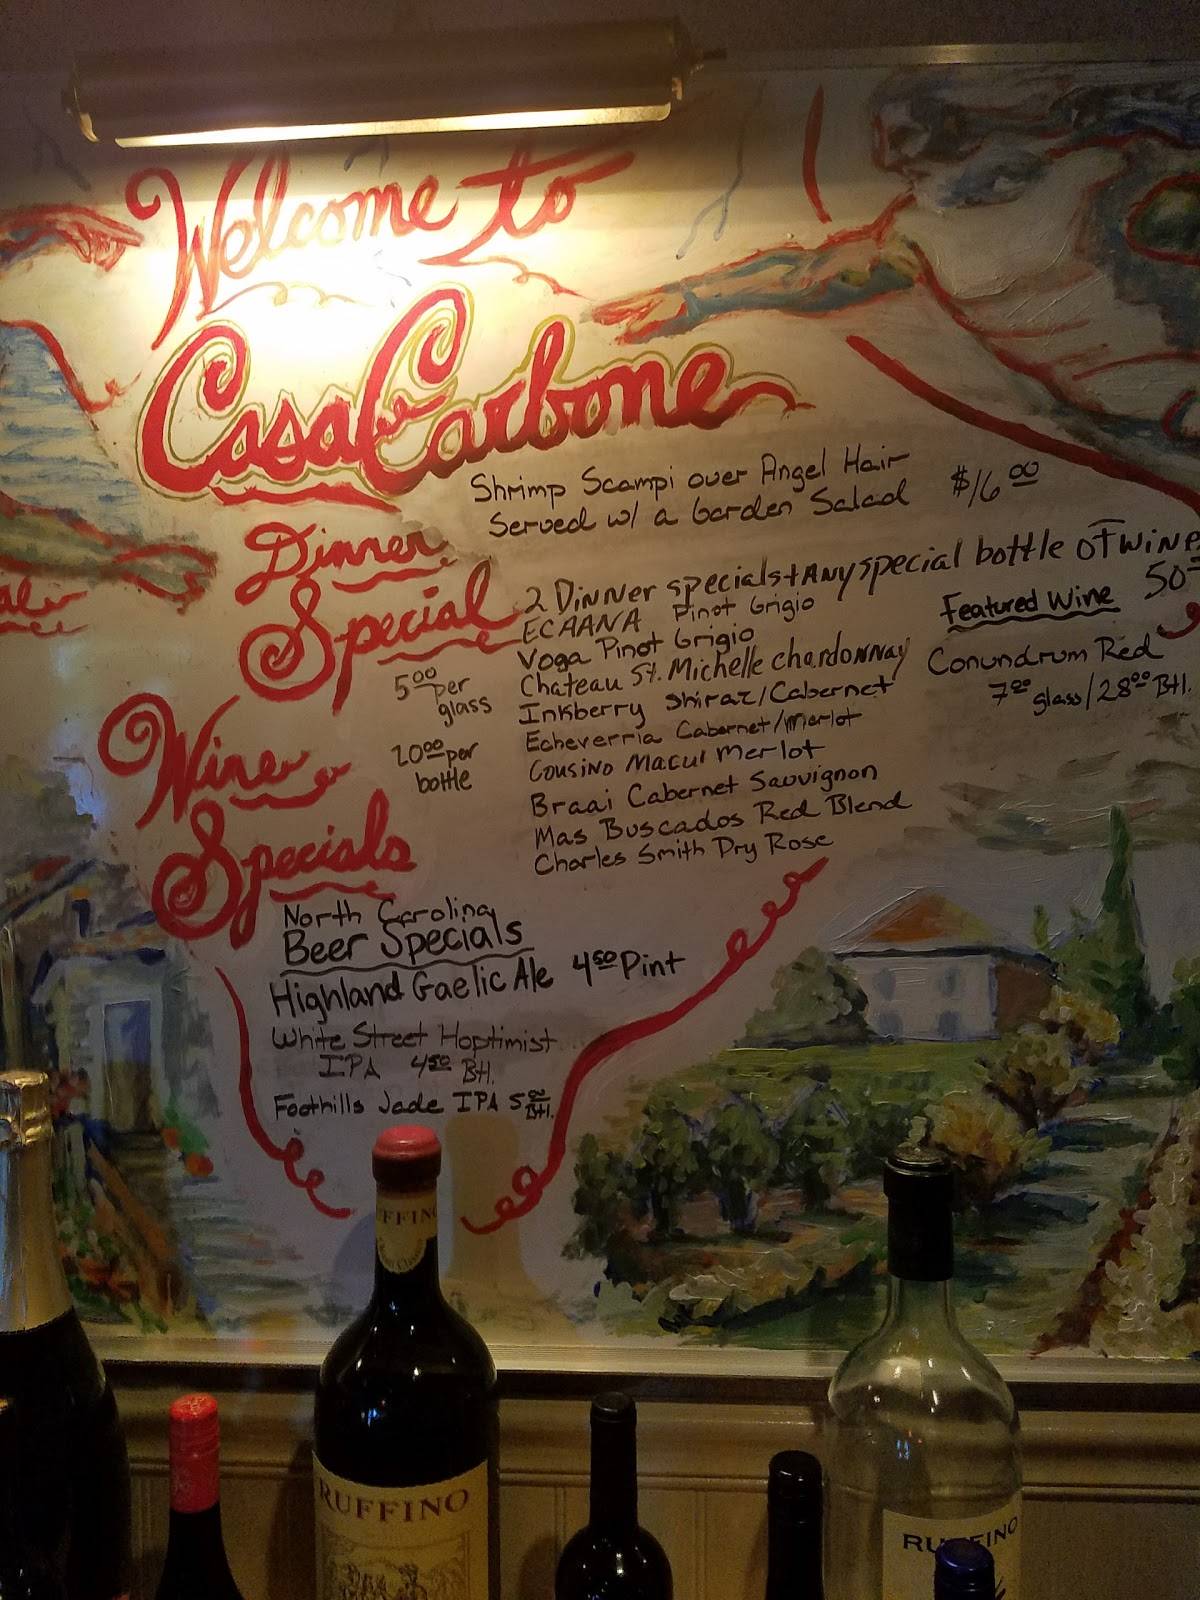 Welcome to
Casa Carbone
Shrimp Scampi over Angel Hair
Served w/ a Garden Salad $16.00
Dinner
Special
2 Dinner specials + Any special bottle of Wine
50
ECAANA Pinot Grigio
Voga Pinot Grigio
Chateau St. Michelle chardonnay
Inkberry Shiraz/Cabernet
Echeverria Cabernet/Merlot
Cousino Macul Merlot
Braai Cabernet Sauvignon
Mas Buscados Red Blend
Charles Smith Dry Rose
Featured Wine
Conundrum Red
7.00 glass/28.00 Btl.
5.00 per
glass
20.00 per
bottle
Wine
Specials
North Carolina
Beer Specials
Highland Gaelic Ale 4.50 Pint
White Street Hoptimist
IPA 4.50 Btl.
Foothills Jade IPA 5.00 Btl.
RUFFINO